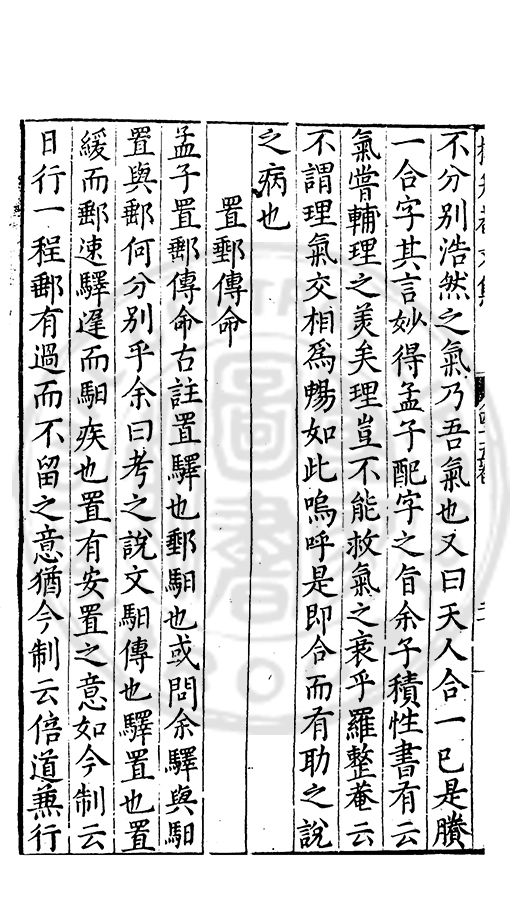 不分別浩然之氣乃吾氣也又曰天人合一已是賸
一合字其言妙得孟子配字之旨余子積性書有云
氣嘗輔理之美矣理豈不能救氣之衰乎羅整菴云
不謂理氣交相爲賜如此嗚呼是即合而有助之說
之病也
置郵傳命
孟子置郵傳命古註置驛也郵馹也或問余驛與馹
置與郵何分別乎余曰考之說文馹傳也驛置也置
緩而郵速驛遲而馹疾也置有安置之意如今制云
日行一程郵有過而不留之意猶今制云倍道兼行